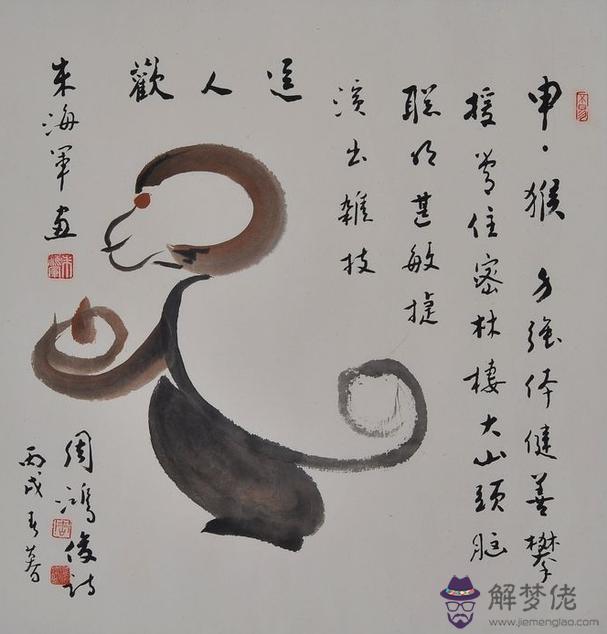 申、猴 力强体健善攀
援常住密林棲大山頭脑
聪明甚敏捷
演出雜技
逗人歡
朱海軍画
周鴻俊诗
丙戌春暮
解梦佬
www.jiemenglao.com